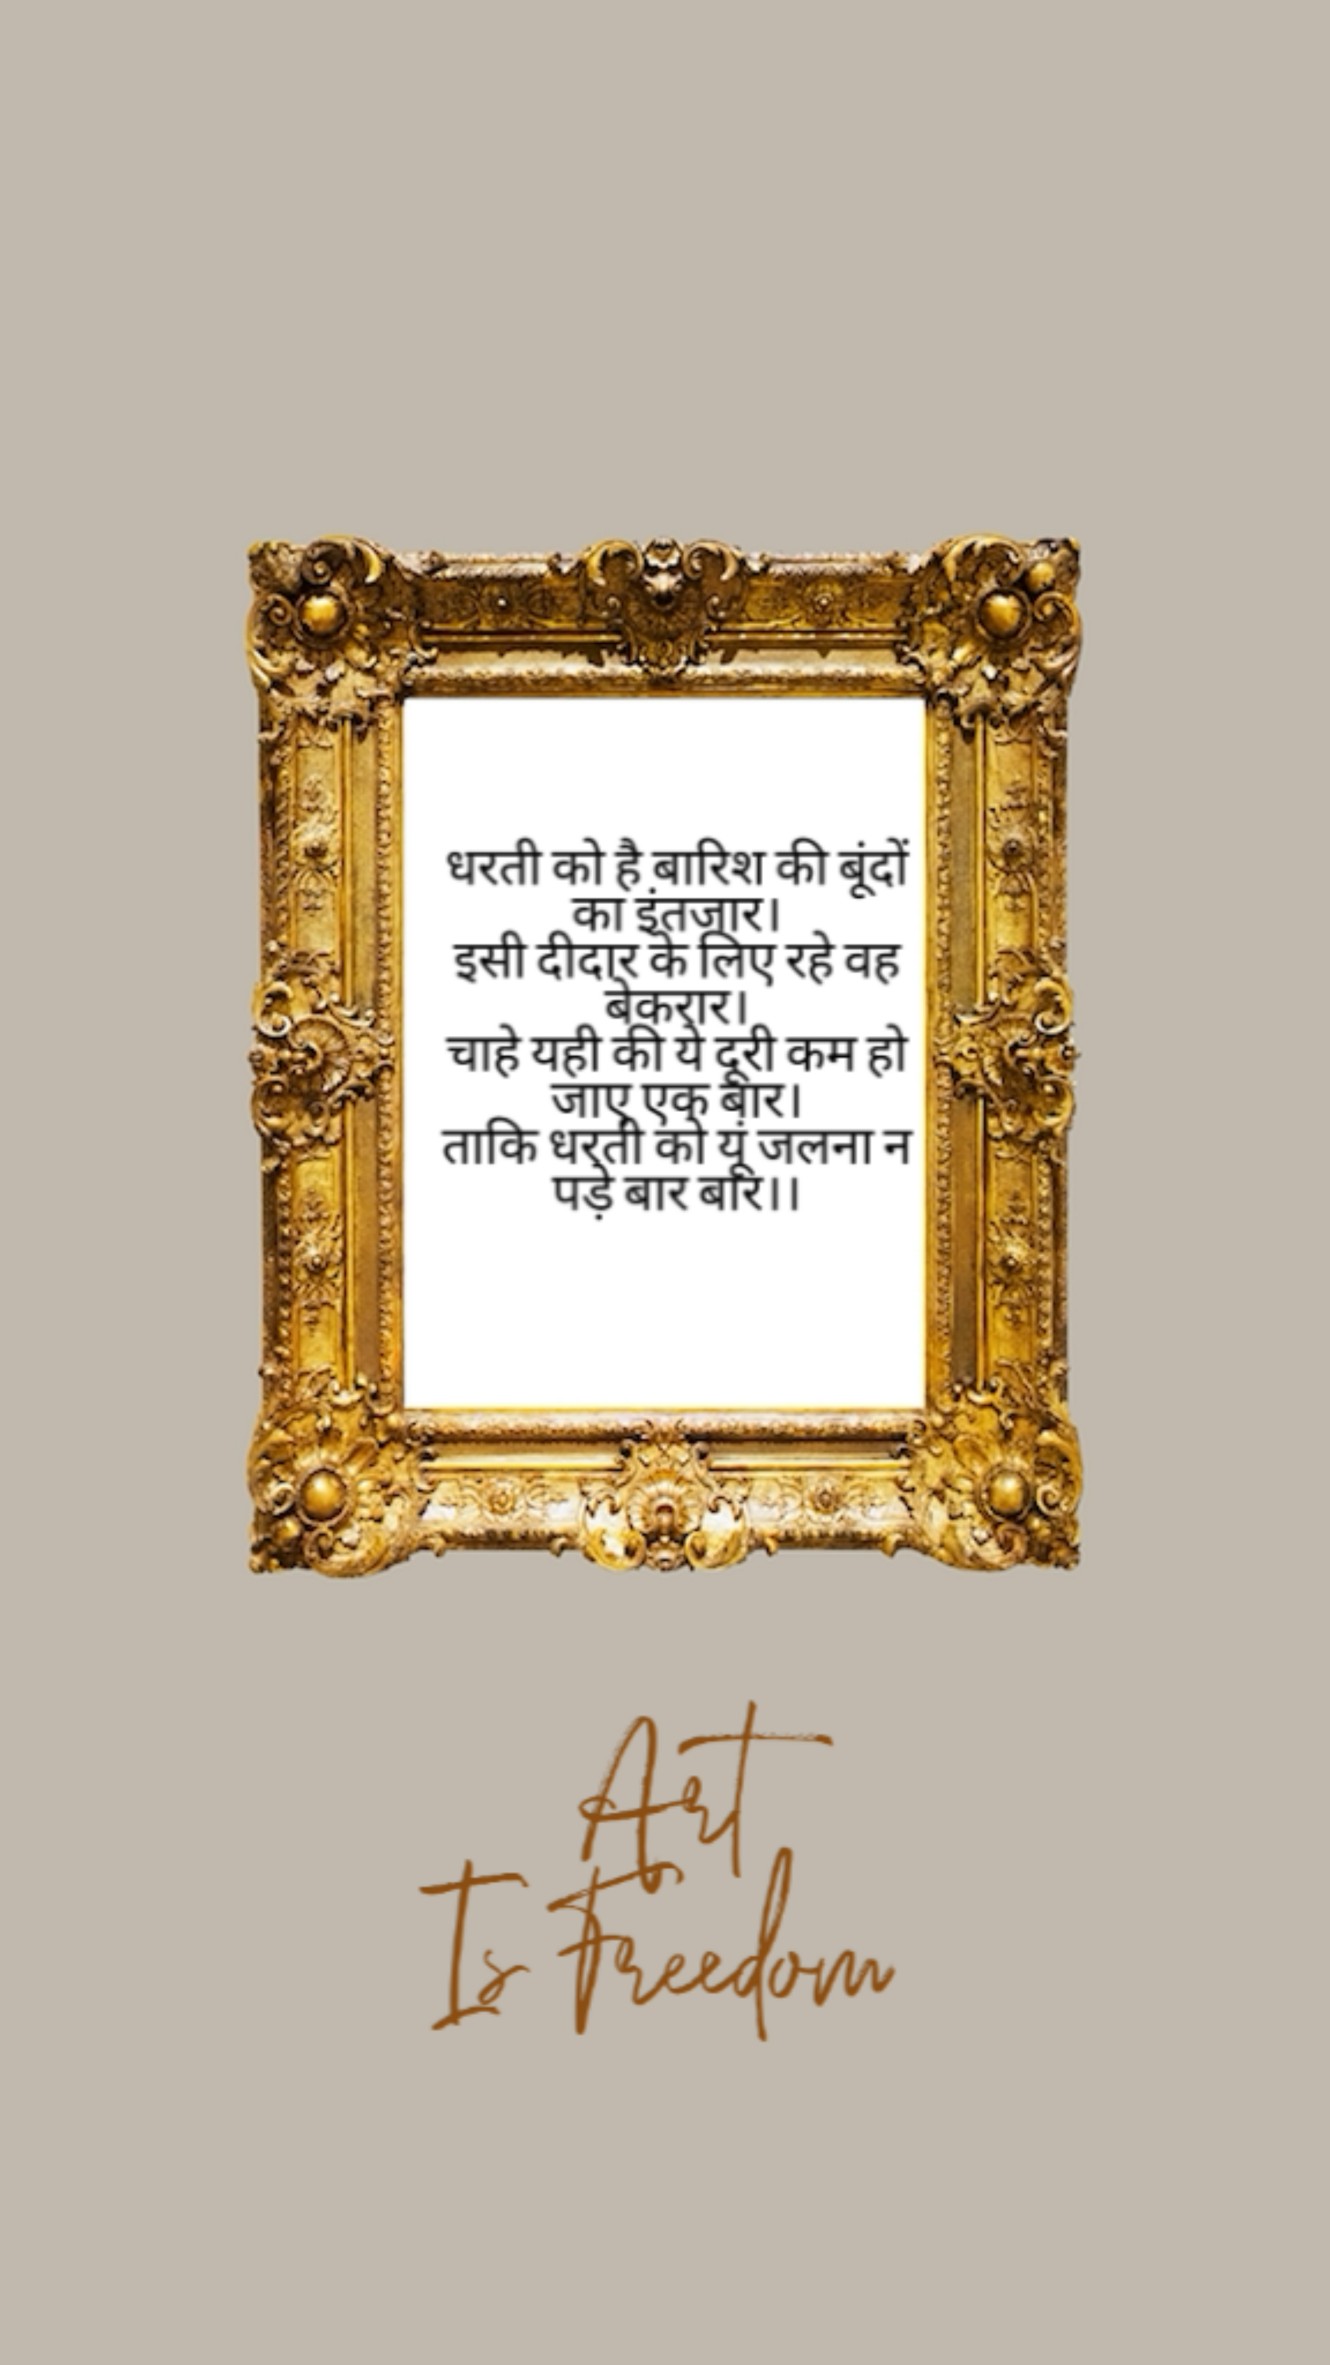 धरती को है बारिश की बूंदों
का इंतजार।
इसी दीदार के लिए रहे वह
बेकरार।
चाहे यही की ये दूरी कम हो
जाए एक बार।
ताकि धरती को यूं जलना न
पड़े बार बार।।
Art
Is Freedom